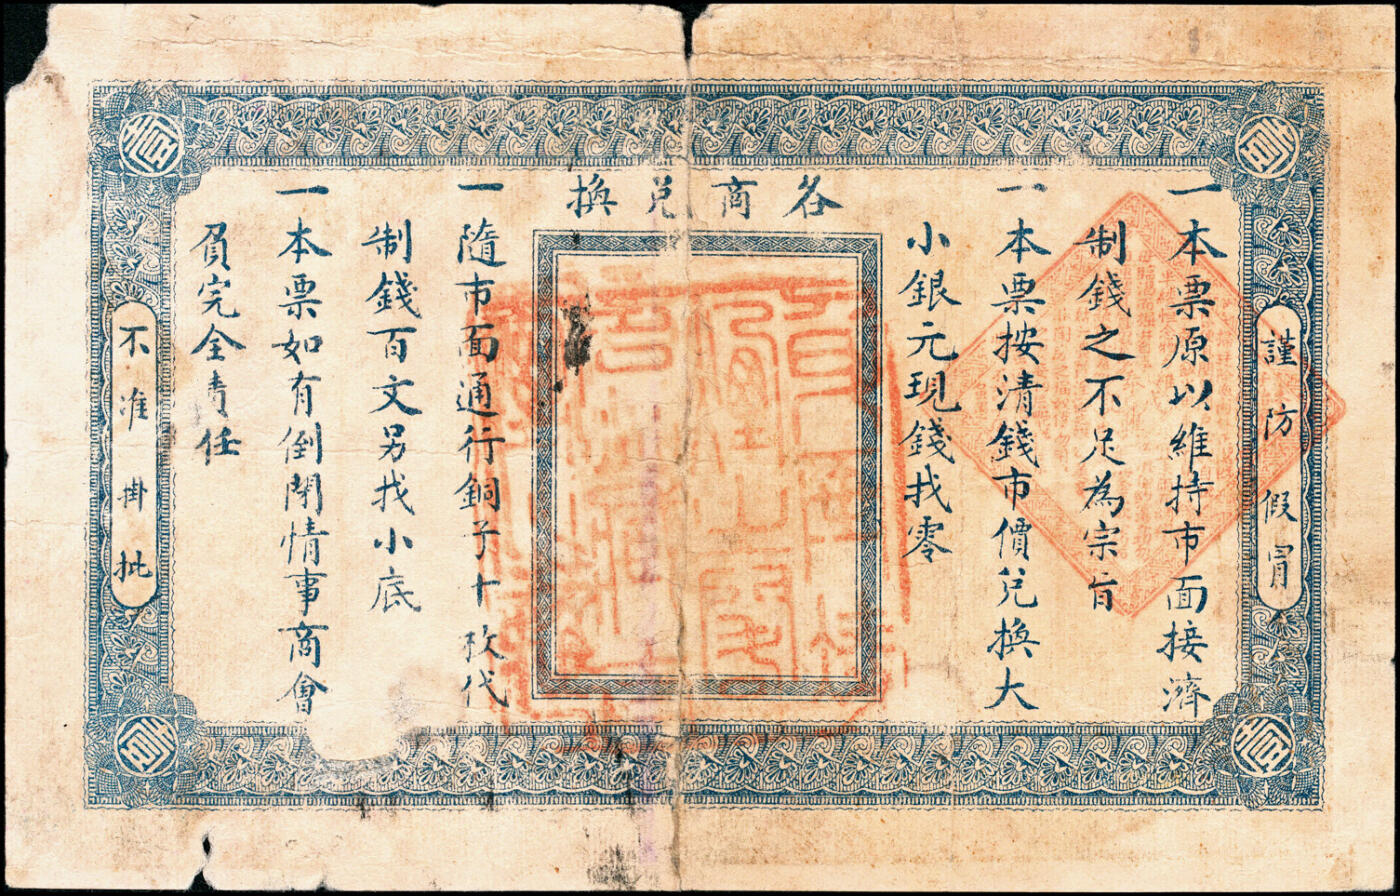 各商兑換
謹防假冒
一本票原以維持市面接濟
制錢之不足為宗旨
一本票按清錢市價兑換大
小銀元現錢找零
一隨市面通行銅子十枚代
制錢百文另找小底
一本票如有倒閉情事商會
負完全責任
不准掛批
壹
壹
壹
壹